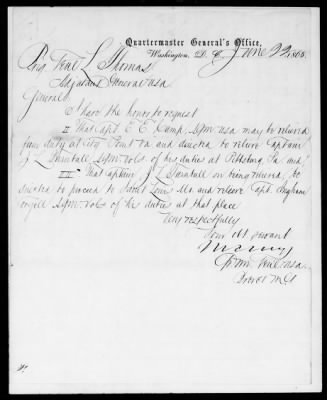 Quartermaster General's Office,
Washington, D. C. June 22 1865.
Brig Genl L Thomas
Adjutant General USA
General:
I have the honor to request
II That Capt. E. E. Camp, AQM USA may be relieved
from duty at City Point Va and directed to relieve Captain
J L Trumbull AQM Vols of his duties at Pittsburg, Pa and
III That Captain J L Trumbull on being relieved, be
directed to proceed to Saint Louis Mo. and relieve Capt.
AQM. Vols of his duties at that place
Very respectfully
Your obt servant
QrMr Genl USA
Brevet M G